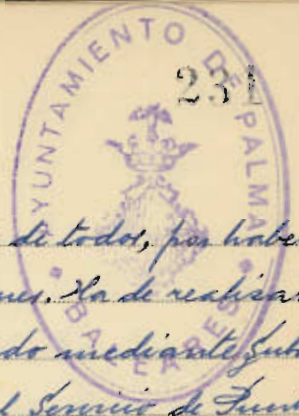 AYUNTAMIENTO DE PALMA
BALEARES
231
de todos, por haber
nes. Ha de realizar
do mediante Sub
l Servicio de